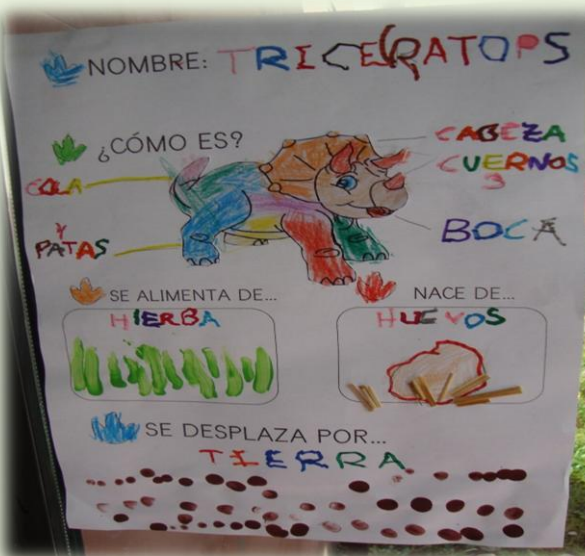 NOMBRE: TRICERATOPS
¿CÓMO ES?
CABEZA
CUERNOS
3
COLA
BOCA
4
PATAS
SE ALIMENTA DE...
HIERBA
NACE DE...
HUEVOS
SE DESPLAZA POR...
TIERRA